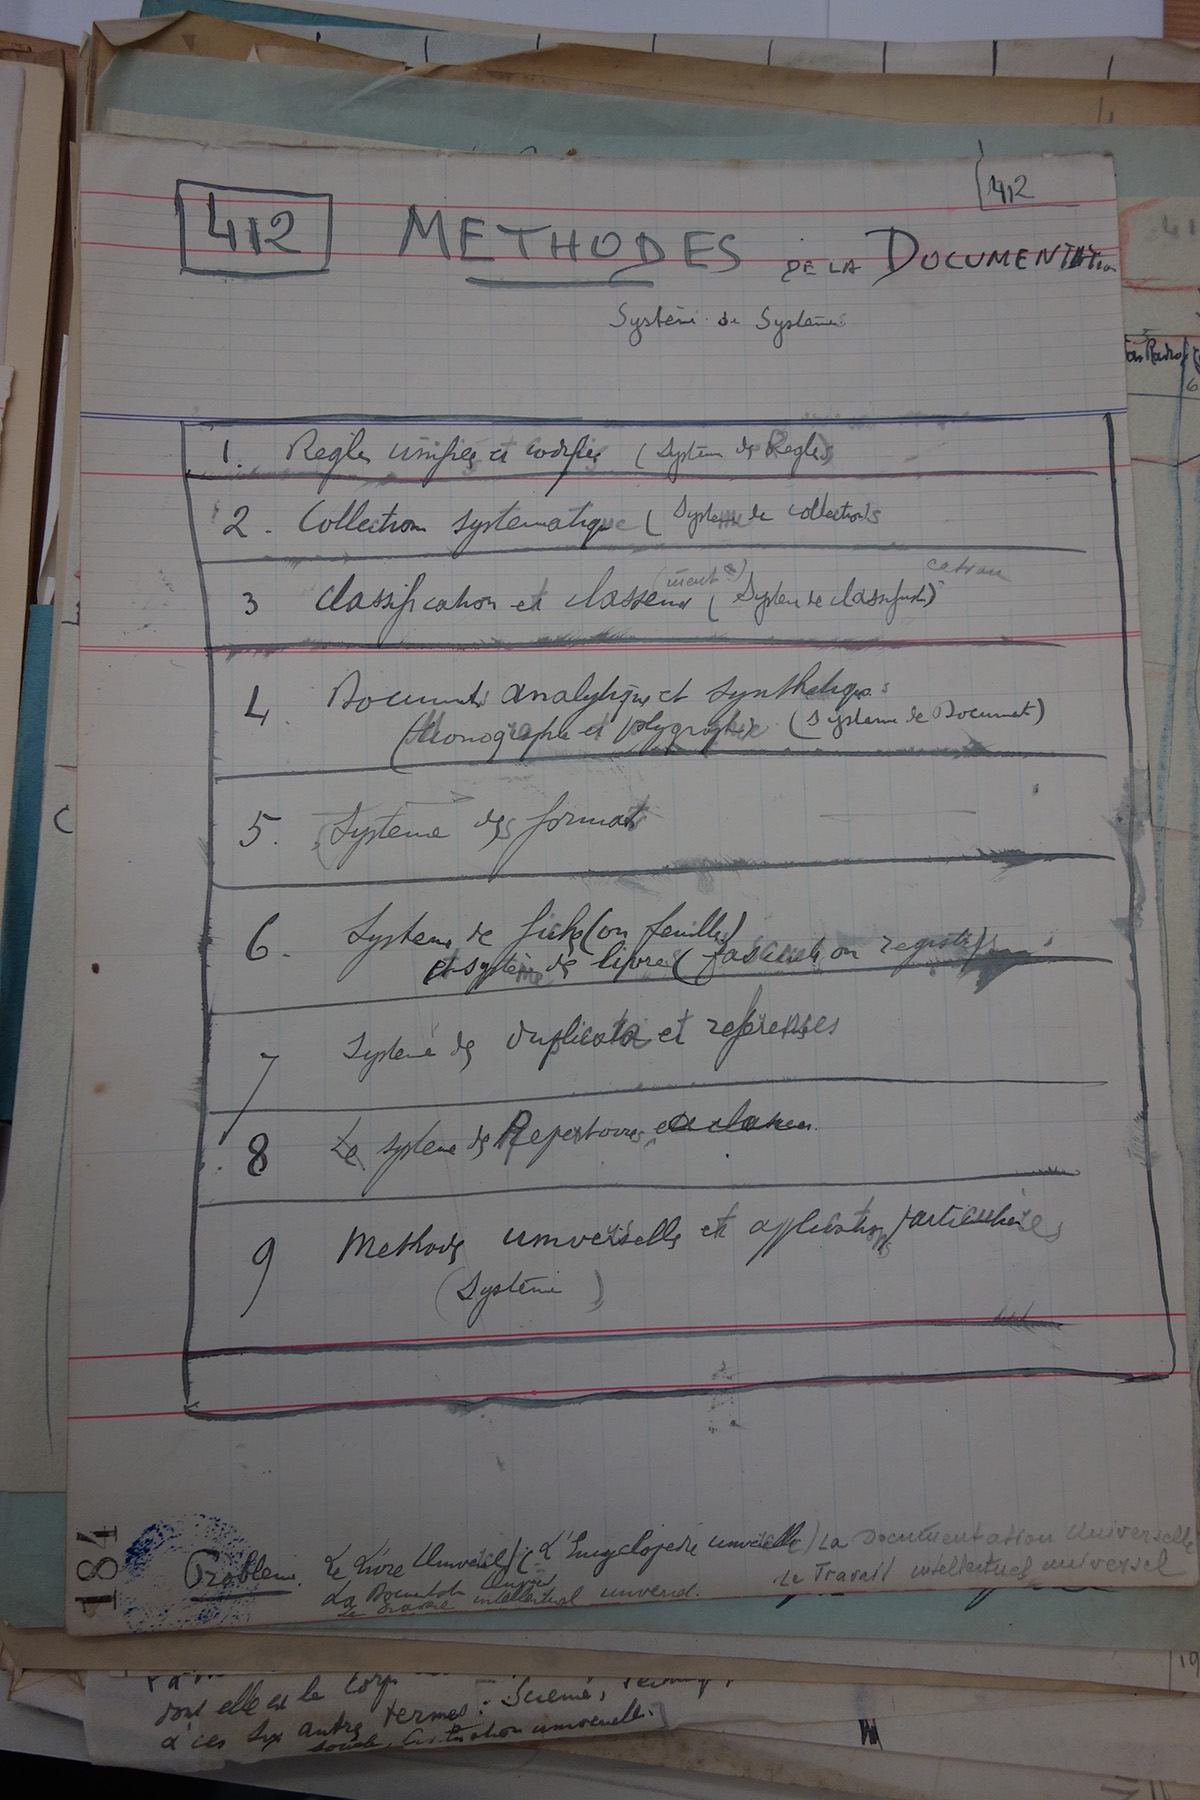 412
412
METHODES DE LA DOCUMENTATION
Système de Systèmes
1. Règles unifiées et codifiées (Système des Règles)
2. Collections systematique (Système de collections
3 Classification et classement (Système de classification)
4. Documents analytiques et synthetiques
(Monographie et polygraphie) (Système de Document)
5. Système des formats
6. Système de fiches (ou feuilles)
et système de livres (fascicule ou registre)
7 Système des duplicata et references
8 Le système des Repertoires
9 Methodes universelles et applications particulières
(Système )
184
Problème. Le Livre Universel / (L'Encyclopedie universelle) La Documentation Universelle
La Le Travail intellectuel universel
intellectuel universel.
dont elle est le Corps
à ces six autres termes: Science,
sociale, universelle.